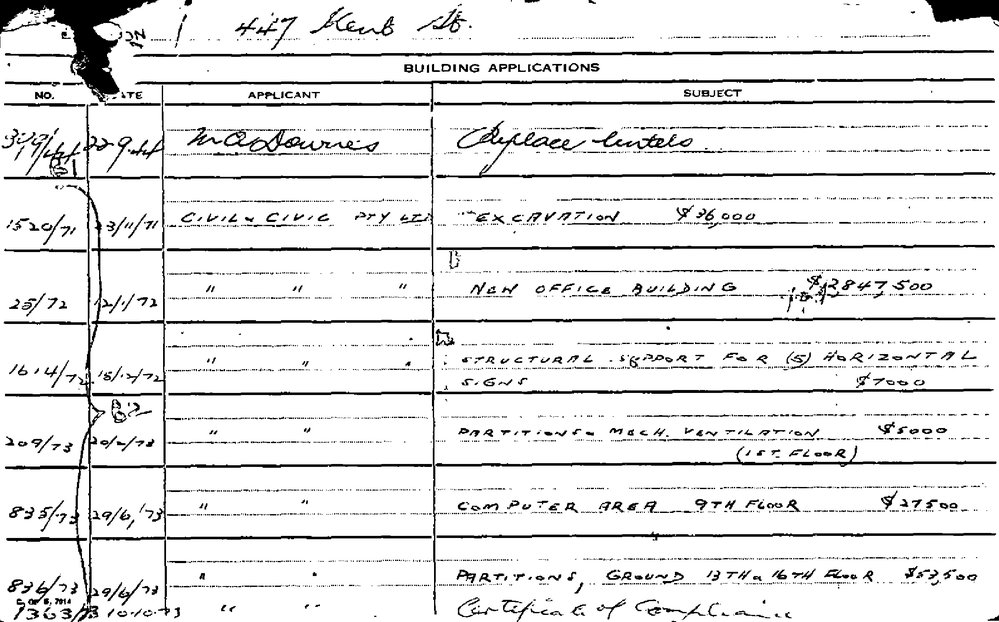 447 Kent St.
BUILDING APPLICATIONS
NO. APPLICANT SUBJECT
22-9-44 Replace lintels
1520/71 CIVIL & CIVIC PTY LTD EXCAVATION $36,000
25/72 12/1/72 " " " NEW OFFICE BUILDING
1614/72 15/12/72 " " " STRUCTURAL SUPPORT FOR (5) HORIZONTAL
SIGNS $7000
B2
209/73 " " PARTITIONS & MECH. VENTILATION $5000
(1ST. FLOOR)
835/73 29/6/73 " " COMPUTER AREA 9TH FLOOR $27500
836/73 29/6/73 " " PARTITIONS, GROUND 13TH & 16TH FLOOR $53,500
1363/73 10.10.73 " " Certificate of Compliance